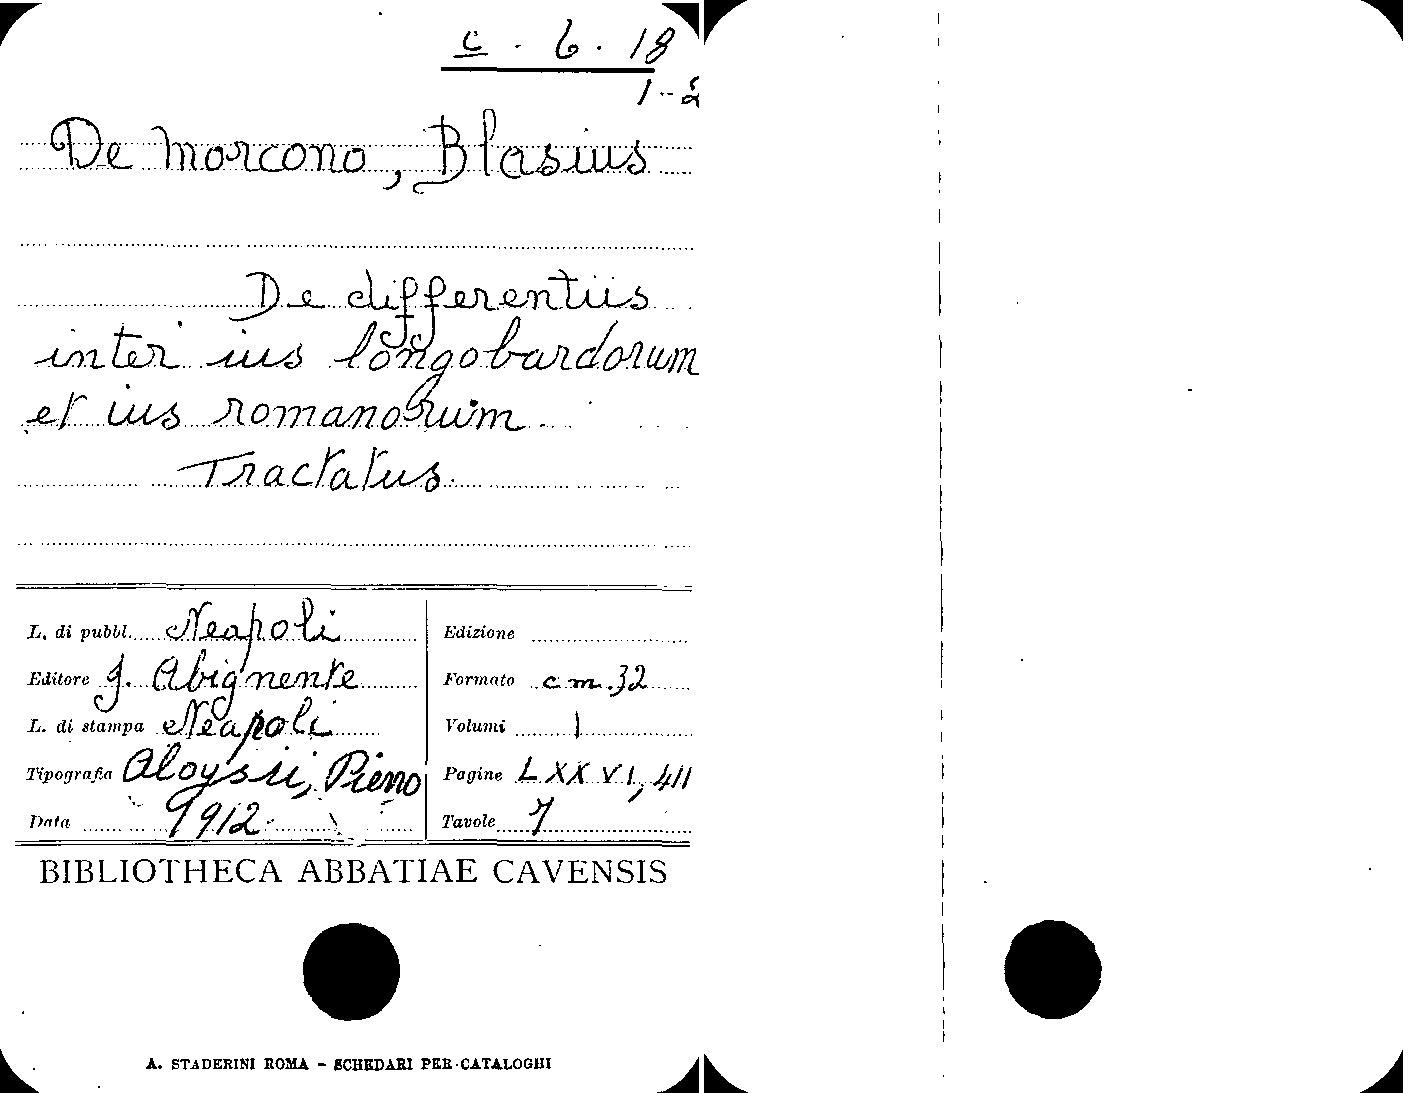 c. 6. 18
1-2
De Morcono, Blasius
De differentiis
inter ius longobardorum
et ius romanorum
Tractatus.
L. di pubbl. Neapoli
Editore J. Abignente
L. di stampa Neapoli
Tipografia Aloysii, Pieno
Data 1912
Edizione
Formato cm. 32
Volumi 1
Pagine LXXVI, 411
Tavole 7
BIBLIOTHECA ABBATIAE CAVENSIS
A. STADERINI ROMA - SCHEDARI PER CATALOGHI